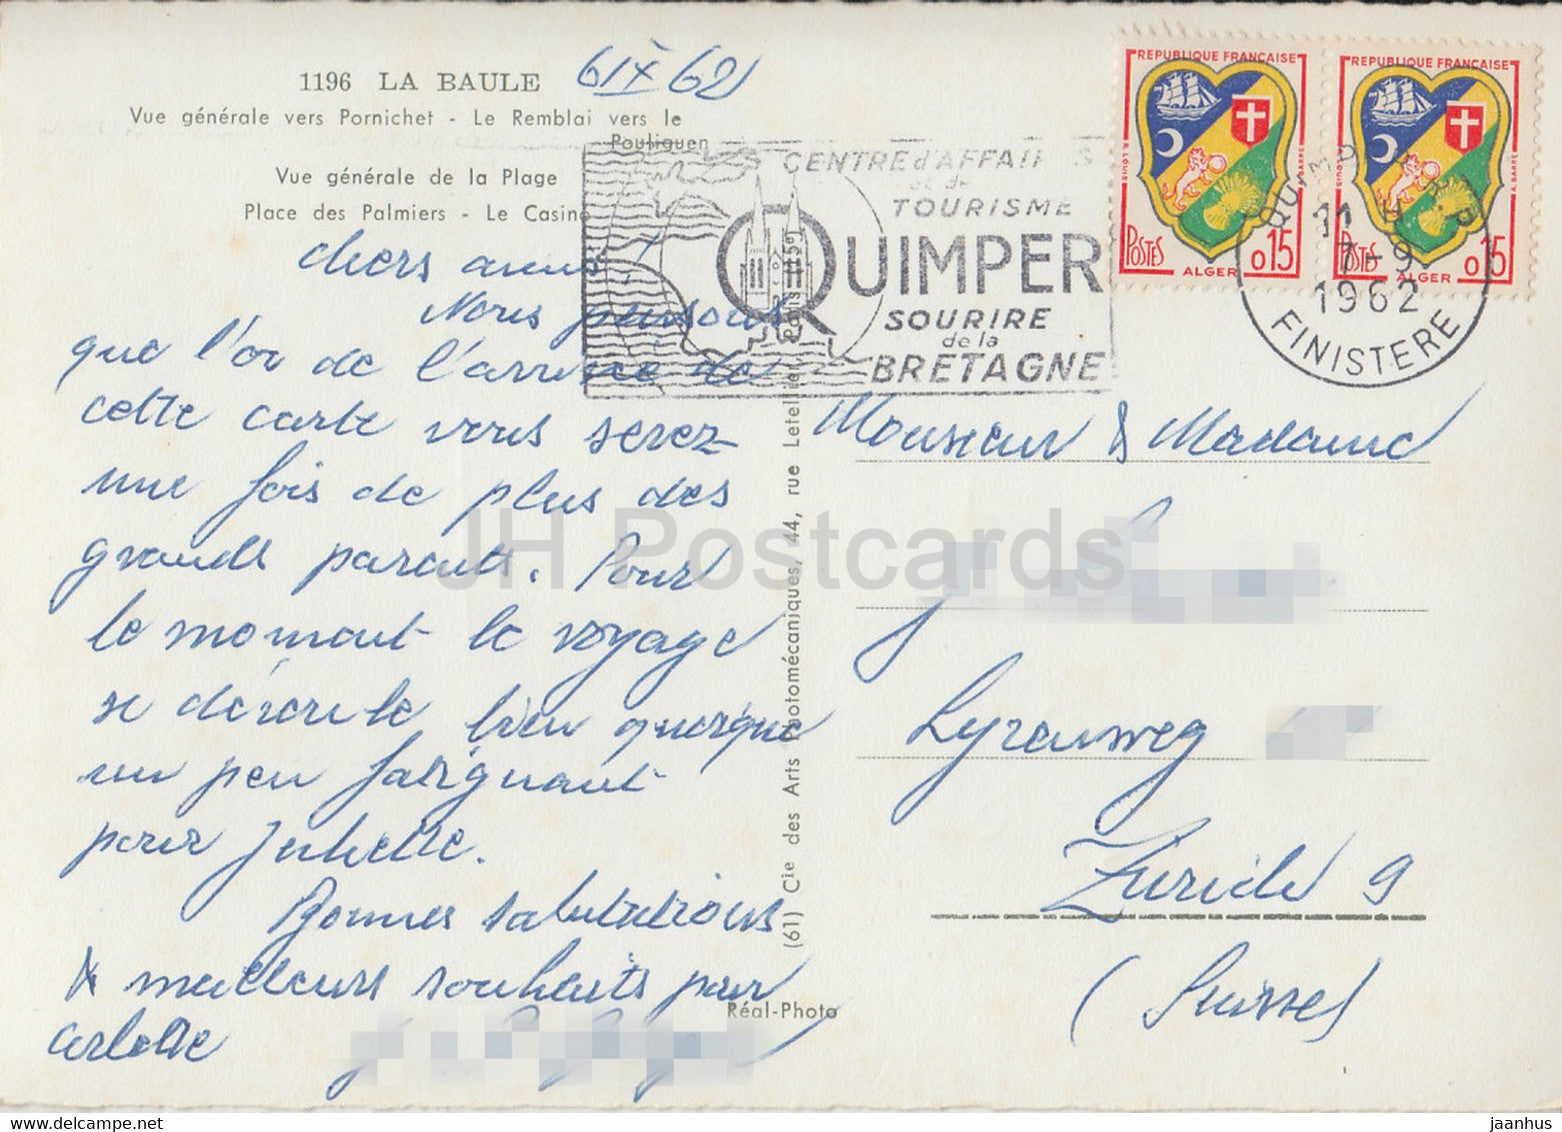 1196 LA BAULE
6 IX 62
Vue générale vers Pornichet - Le Remblai vers le
Pouliguen
Vue générale de la Plage
Place des Palmiers - Le Casino
chers amis!
Nous pensons
que l'or de l'arrivée de
cette carte vous serez
une fois de plus des
grands parents. Pour
le moment le voyage
se déroule bien quoique
un peu fatiguant
pour Juliette.
Bonnes salutations
& meilleurs souhaits pour
Arlette
CENTRE d'AFFAIRES
et de
TOURISME
QUIMPER
SOURIRE
de la
BRETAGNE
REPUBLIQUE FRANÇAISE
POSTES
ALGER
0,15
REPUBLIQUE FRANÇAISE
POSTES
ALGER
0,15
QUIMPER R.P.
11 H
7-9
1962
FINISTERE
(61) Cie des Arts Photomécaniques, 44, rue Letellier, Paris (15e)
Réal-Photo
Monsieur & Madame
Lyrenweg
Zürich 9
(Suisse)
JH Postcards
delcampe.net
jaanhus